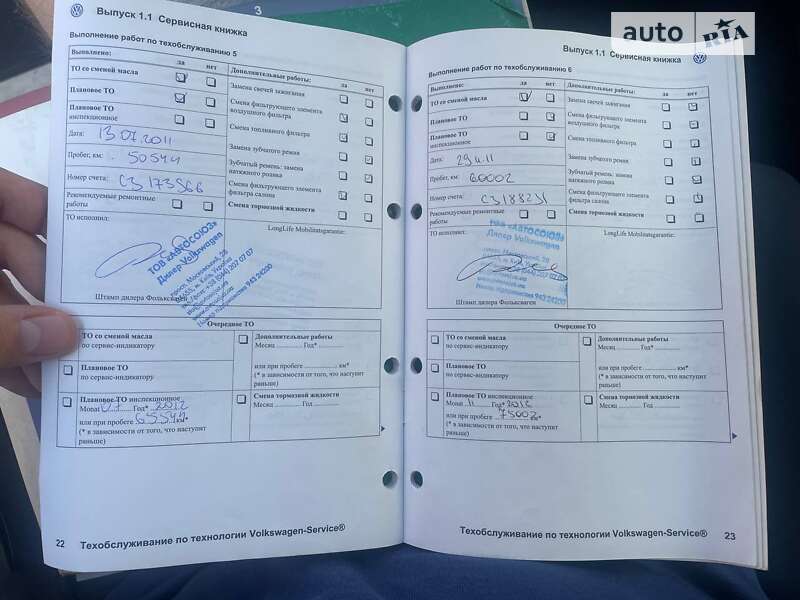 3
auto RIA
Выпуск 1.1 Сервисная книжка
Выполнение работ по техобслуживанию 5
Выполнено:
да нет
ТО со сменой масла
Плановое ТО
Плановое ТО
инспекционное
Дата: 13.07.2011
Пробег, км: 50544
Номер счета: СЗ 173566
Рекомендуемые ремонтные
работы
Дополнительные работы:
да нет
Замена свечей зажигания
Смена фильтрующего элемента
воздушного фильтра
Смена топливного фильтра
Замена зубчатого ремня
Зубчатый ремень: замена
натяжного ролика
Смена фильтрующего элемента
фильтра салона
Смена тормозной жидкости
ТО исполнил:
LongLife Mobilitatsgarantie:
ТОВ «АВТОСОЮЗ»
Дилер Volkswagen
Штамп дилера Фольксваген
Очередное ТО
ТО со сменой масла
по сервис-индикатору
Плановое ТО
по сервис-индикатору
Плановое ТО инспекционное
Monat 07 Год* 2012
или при пробеге 65542 км*
(* в зависимости от того, что наступит
раньше)
Дополнительные работы
Месяц Год*
или при пробеге км*
(* в зависимости от того, что наступит
раньше)
Смена тормозной жидкости
Месяц Год
22 Техобслуживание по технологии Volkswagen-Service®
Выпуск 1.1 Сервисная книжка
Выполнение работ по техобслуживанию 6
Выполнено:
да нет
ТО со сменой масла
Плановое ТО
Плановое ТО
инспекционное
Дата: 29.11.11
Пробег, км: 60002
Номер счета: СЗ188231
Рекомендуемые ремонтные
работы
Дополнительные работы:
да нет
Замена свечей зажигания
Смена фильтрующего элемента
воздушного фильтра
Смена топливного фильтра
Замена зубчатого ремня
Зубчатый ремень: замена
натяжного ролика
Смена фильтрующего элемента
фильтра салона
Смена тормозной жидкости
ТО исполнил:
LongLife Mobilitatsgarantie:
ТОВ «АВТОСОЮЗ»
Дилер Volkswagen
Штамп дилера Фольксваген
Очередное ТО
ТО со сменой масла
по сервис-индикатору
Плановое ТО
по сервис-индикатору
Плановое ТО инспекционное
Monat 11 Год* 2012
или при пробеге 75002 км*
(* в зависимости от того, что наступит
раньше)
Дополнительные работы
Месяц Год*
или при пробеге км*
(* в зависимости от того, что наступит
раньше)
Смена тормозной жидкости
Месяц Год
Техобслуживание по технологии Volkswagen-Service® 23